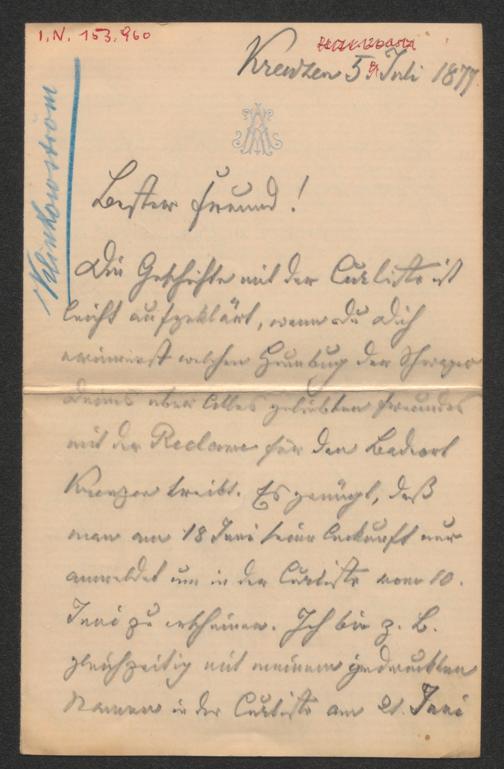 I. N. 153.960
Kreuzen 5. Juli 1877
Klinkowström
Bester Freund!
Die Geschichte mit der Curliste ist
leicht aufgeklärt, wenn du dich
erinnerst welchen Humbug der
Deines über Alles geliebten Freundes
mit der Reclame für den Badeort
Kreuzen treibt. Es genügt, daß
man am 18 Juni seine Ankunft nur
anmeldet um in der Curliste vom 10.
Juni zu erscheinen. Ich bin z. B.
gleichzeitig mit meinem gedruckten
Namen in der Curliste am 21. Juni